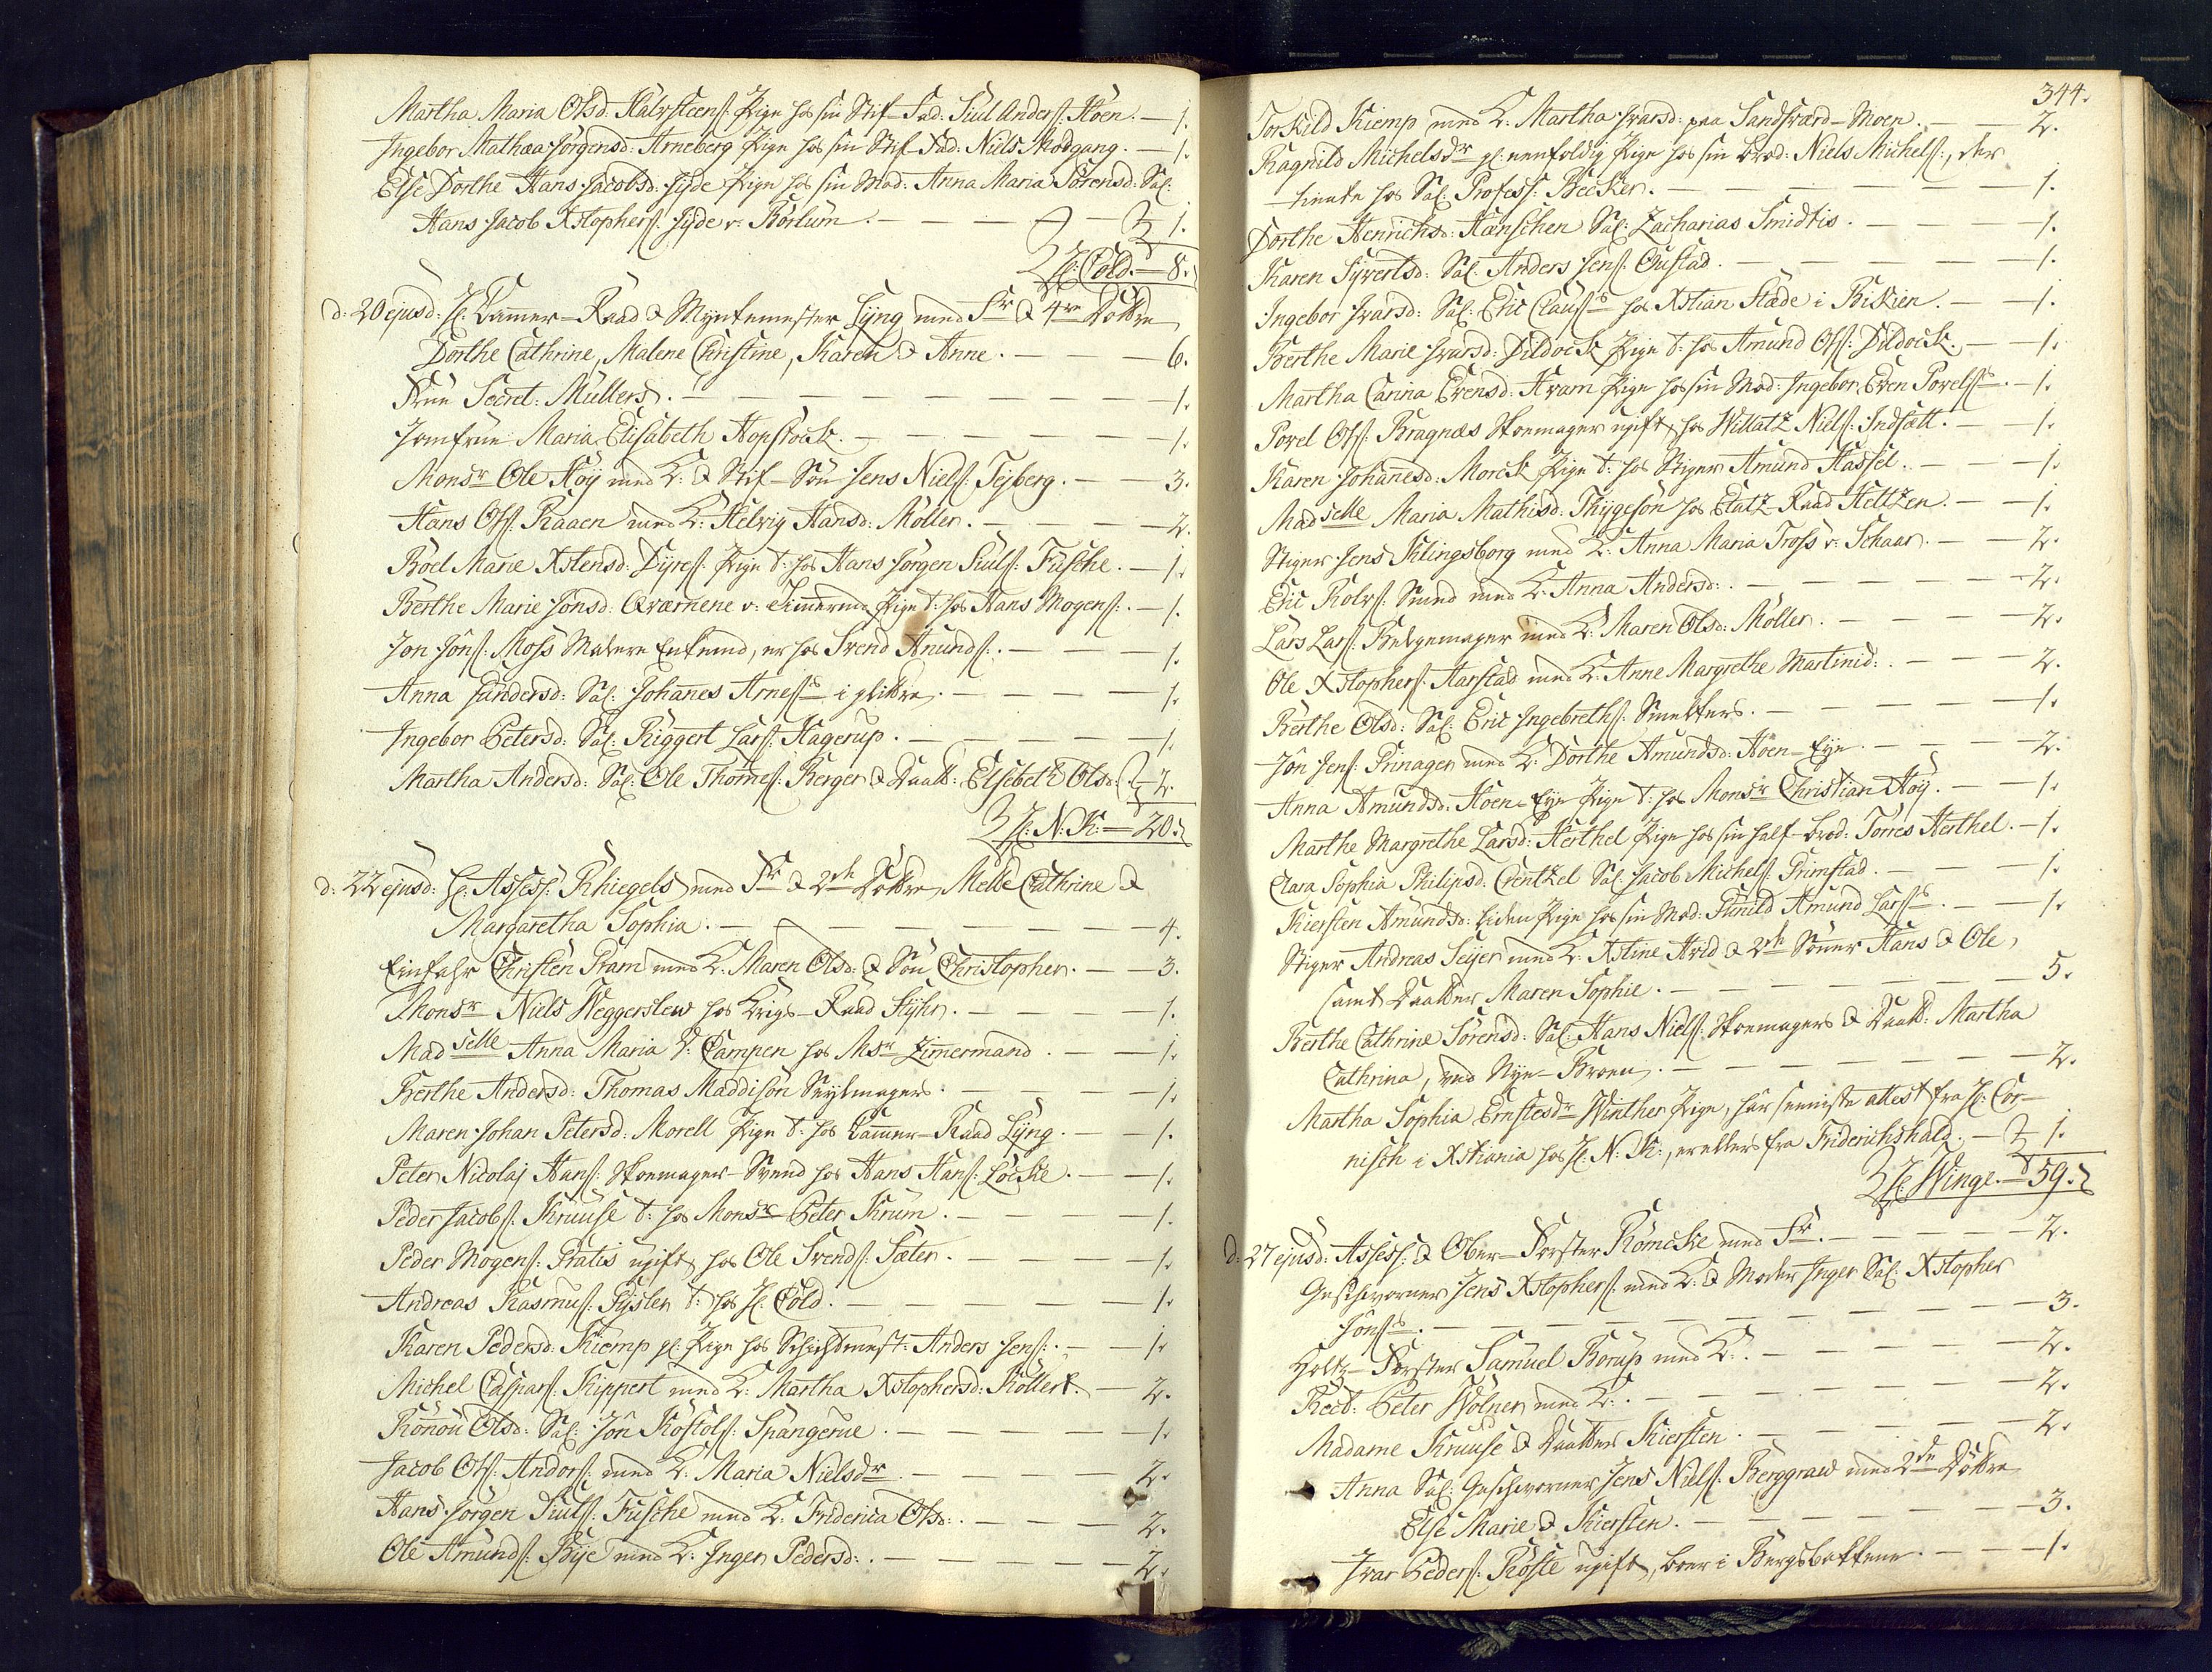 Martha Maria Olsd: Halvsteens: Pige hos sin Stif-Fad: Juul Anders: Höen. — 1.
Ingebor Mathæa Jörgensd: Arneberg Pige hos sin Stif-Fad: Niels Modgang. — 1.
Else Dorthe Hans Jacobsd: Hyde Pige hos sin Mod: Anna Maria Sörensd: Sal:
Hans Jacob Xstophers: Hyde v: Börlum. — 1.
H: Cold. — 8.
d: 20 ejusd: H: Cammer-Raad & Myntemester Lyng med Fr & 4re Döttre
Dorthe Cathrine, Malene Christine, Karen & Anne. — 6.
Frue Secret: Müllers. — 1.
Jomfrue Maria Elisabeth Hopstock. — 1.
Monsr Ole Höy med K: & Stif-Sön Jens Niels: Tejberg. — 3.
Hans Ols: Raaen med K: Helvig Hansd: Möller. — 2.
Boel Marie Xstensd: Dyres: Pige t: hos Hans Jörgen Juuls: Fusche. — 1.
Berthe Marie Jonsd: Qværnene v: Timmerm: Pige t: hos Hans Mogens: — 1.
Jon Jöns: Moss Malere Enkemd, er hos Svend Amunds: — 1.
Anna Gundersd: Sal: Johannes Arness i — 1.
Ingebor Petersd: Sal: Riggert Lars: Hagerup. — 1.
Martha Andersd: Sal: Ole Thomes: Berger & Daatt: Elsebeth Olsd: — 2.
H: N: K: — 20.
d: 22 ejusd: H: Assess: Rhiegels med Fr & 2de Döttre Melle Cathrine &
Margaretha Sophia. — 4.
Einfahr Christen Pram med K: Maren Olsd: & Sön Christopher. — 3.
Monsr Niels Weggerslew hos Krigs-Raad Hyhr. — 1.
Madselle Anna Maria v: Campen hos Msr Zimermand. — 1.
Berthe Andersd: Thomas Maddison Seylmagers. — 1.
Maren Johan Petersd: Morell Pige t: hos Cammer-Raad Lyng. — 1.
Peter Nicolaj Hans: Skoemager-Svend hos Hans Hans: Löcke. — 1.
Peder Jacobs: Kruuse t: hos Monsr Peter Krum. — 1.
Peder Mogens: Pratis ugift, hos Ole Svends: Sæter. — 1.
Andreas Rasmus: Fysler t: hos H: Cold. — 1.
Karen Pedersd: Kiemp gl: Pige hos Schichtmest: Anders Jens: — 1.
Michel Caspars: Kippert med K: Martha Xstophersd: Kollert. — 2.
Rönnou Olsd: Sal: Jön Kostols: Spangerue. — 1.
Jacob Ols: Andors: med K: Maria Nielsdr — 2.
Hans Jörgen Juuls: Fusche med K: Friderica Olsd: — 2.
Ole Amunds: Bije med K: Inger Pedersd: — 2.
344.
Torskild Kiemp med K: Martha Ivarsd: paa Sandsværd-Moen. — 2.
Ragnild Michelsdr gl: eenfoldig Pige hos sin brod: Niels Michels:, der
tiente hos Sal: Profess: Becker. — 1.
Dorthe Henrichsd: Hænschen Sal: Zacharias Smidtis. — 1.
Karen Syvertsd: Sal: Anders Jens: Oustad. — 1.
Ingebor Ivarsd: Sal: Eric Clauss hos Xstian Stæde i Bickien. — 1.
Berthe Marie Ivarsd: Dildock Pige t: hos Amund Ols: Dildock. — 1.
Martha Carina Evensd: Hvam Pige hos sin Mod: Ingebor Even Povelss — 1.
Povel Ols: Bragnæs Skoemager ugift, hos Willatz Niels: Indsætt. — 1.
Karen Johannesd: Morck Pige t: hos Stiger Amund Hassel. — 1.
Madselle Maria Mathisd: Thygeson hos Etatz-Raad Heltzen. — 1.
Stiger Jens Klingsborg med K: Anna Maria Tross v: Schaar. — 2.
Eric Rolvs: Smed med K: Anna Andersd: — 2.
Lars Lars: Belgemager med K: Maren Olsd: Möller. — 2.
Ole Xstophers: Aarstad med K: Anne Margrethe Martinid: — 2.
Berthe Olsd: Sal: Eric Ingebreths: Smelters. — 1.
Jön Jens: Prinager med K: Dorthe Amundsd: Höen-Eye. — 2.
Anna Amundsd: Höens Eye Pige t: hos Monsr Christian Höy. — 1.
Marthe Margrethe Larsd: Herthel Pige hos sin half-brod: Torres Herthel. — 1.
Clara Sophia Philipsd: Crentzel Sal: Jacob Michels: Primstad. — 1.
Kiersten Amundsd: liden Pige hos sin Mod: Gunild Amund Larss — 1.
Stiger Andreas Seyer med K: Xstine Hvid & 2de Sönner Hans & Ole,
samt Daatter Maren Sophie. — 5.
Berthe Cathrine Sörensd: Sal: Hans Niels: Skoemagers & Daatt: Martha
Cathrina, ved Nye-Broen. — 2.
Martha Sophia Ernstesdr Winther Pige, har seeniste attest fra H: Cor-
nisch i Xstiania hos H: N: K:, er ellers fra Friderichshald. — 1.
H: Winge. — 59.
d: 27 ejusd: Assess: & Ober-Forster Römcke med Fr. — 2.
Geschworner Jens Xstophers: med K: & Moder Inger Sal: Xstopher
Jönss. — 3.
Holtz-Forster Samuel Borup med K: — 2.
Rect: Peter Wölner med K: — 2.
Madame Kruuse & Daatter Kiersten. — 2.
Anna Sal: Geschworner Jens Niels: Berggraw med 2de Döttre
Else Marie & Kiersten. — 3.
Ivar Peders: Röste ugift, boer i Bergsbakkene. — 1.